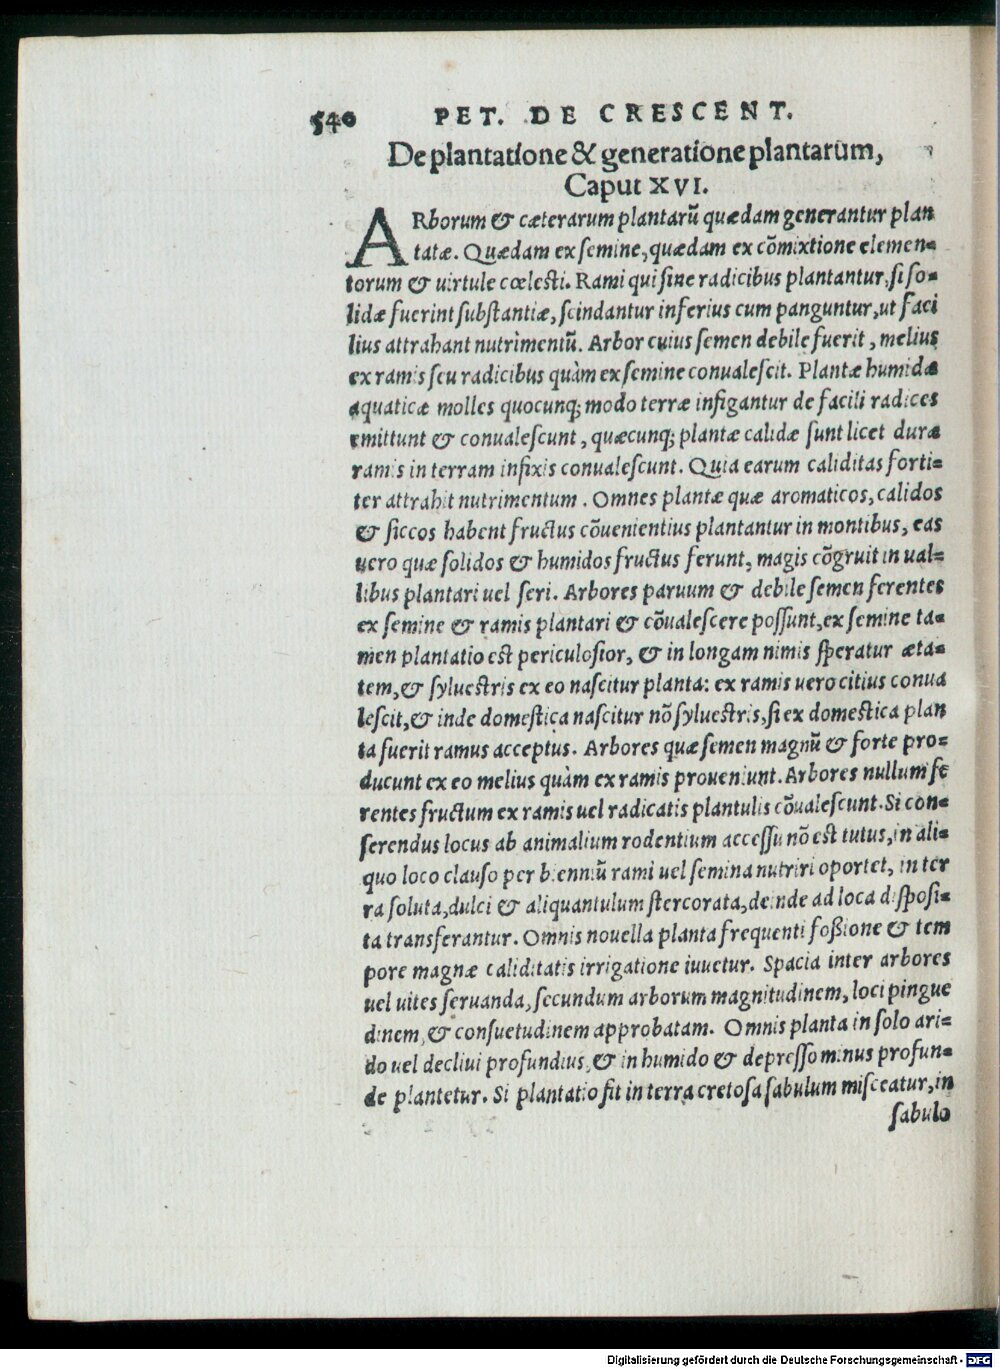 540 PET. DE CRESCENT.
De plantatione & generatione plantarum,
Caput XVI.
ARborum & cæterarum plantarũ quædam generantur plan
tatæ. Quædam ex semine, quædam ex cõmixtione elemen=
torum & uirtute cœlesti. Rami qui sine radicibus plantantur, si so=
lidæ fuerint substantiæ, scindantur inferius cum panguntur, ut faci
lius attrahant nutrimentũ. Arbor cuius semen debile fuerit, melius
ex ramis seu radicibus quàm ex semine conualescit. Plantæ humidæ
aquaticæ molles quocunq; modo terræ infigantur de facili radices
emittunt & conualescunt, quæcunq; plantæ calidæ sunt licet duræ
ramis in terram infixis conualescunt. Quia earum caliditas forti=
ter attrahit nutrimentum. Omnes plantæ quæ aromaticos, calidos
& siccos habent fructus cõuenientius plantantur in montibus, eas
uero quæ solidos & humidos fructus ferunt, magis cõgruit in ual=
libus plantari uel seri. Arbores paruum & debile semen ferentes
ex semine & ramis plantari & cõualescere possunt, ex semine ta=
men plantatio est periculosior, & in longam nimis speratur æta=
tem, & syluestris ex eo nascitur planta: ex ramis uero citius conua
lescit, & inde domestica nascitur nõ syluestris, si ex domestica plan
ta fuerit ramus acceptus. Arbores quæ semen magnũ & forte pro=
ducunt ex eo melius quàm ex ramis proueniunt. Arbores nullum fe
rentes fructum ex ramis uel radicatis plantulis cõualescunt. Si con=
serendus locus ab animalium rodentium accessu nõ est tutus, in ali=
quo loco clauso per bienniũ rami uel semina nutriri oportet, in ter
ra soluta, dulci & aliquantulum stercorata, deinde ad loca disposi=
ta transferantur. Omnis nouella planta frequenti foßione & tem
pore magnæ caliditatis irrigatione iuuetur. Spacia inter arbores
uel uites seruanda, secundum arborum magnitudinem, loci pingue
dinem, & consuetudinem approbatam. Omnis planta in solo ari=
do uel decliui profundius, & in humido & depresso minus profun=
de plantetur. Si plantatio fit in terra cretosa sabulum misceatur, in
sabulo
Digitalisierung gefördert durch die Deutsche Forschungsgemeinschaft - DFG